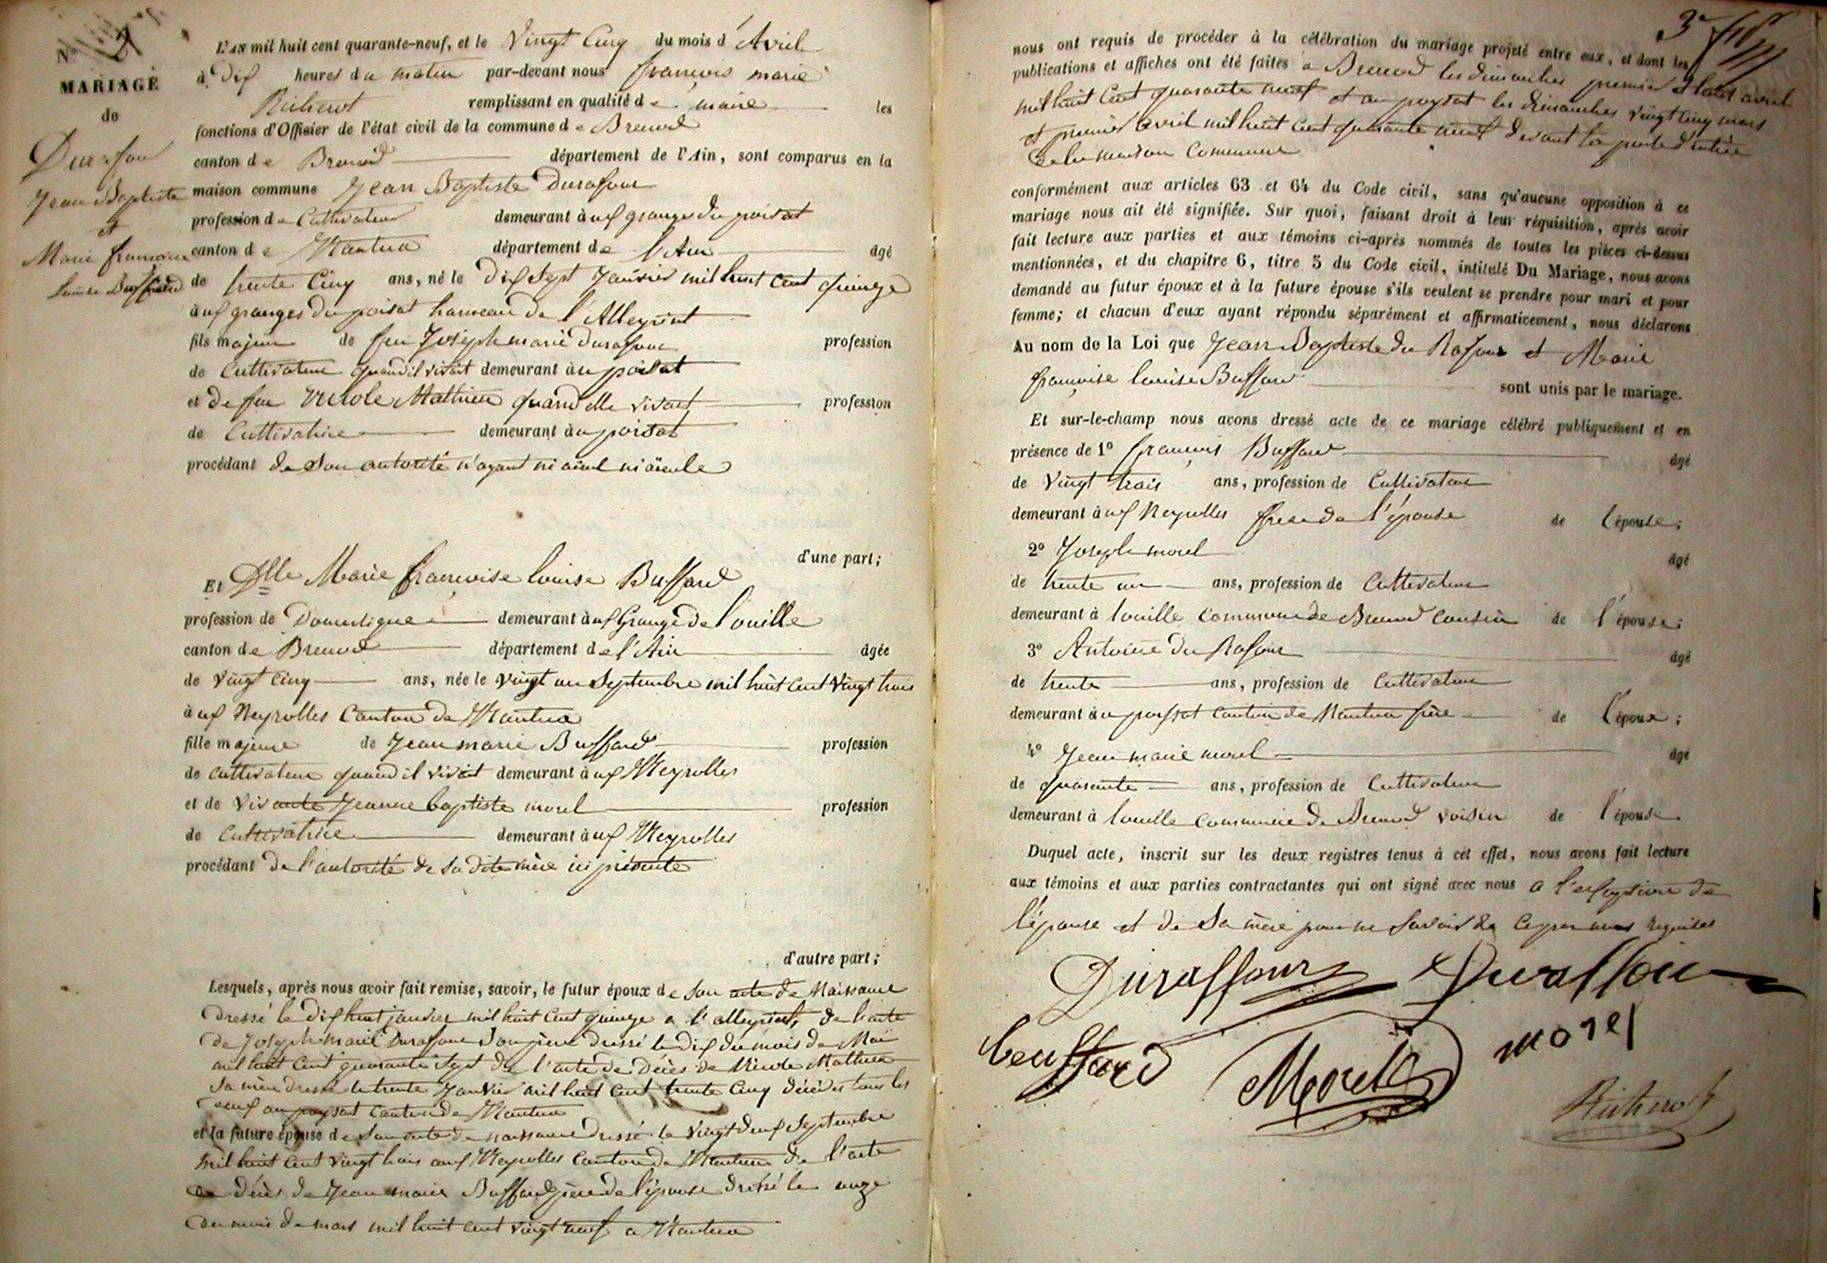 N.
MARIAGE
de
Duraffour
Jean Baptiste
et
Marie françoise
Louise Buffard
L'AN mil huit cent quarante-neuf, et le Vingt Cinq du mois d'Avril
à Dix heures du matin par-devant nous françois marie
Richerot remplissant en qualité de maire les
fonctions d'Officier de l'état civil de la commune de Brenod
canton de Brenod département de l'Ain, sont comparus en la
maison commune Jean Baptiste Duraffour
profession de Cultivateur demeurant aux granges du poisat
canton de Nantua département de l'Ain âgé
de trente Cinq ans, né le dix sept Janvier mil huit cent quinze
aux granges du poisat hameau de l'Alleyriat
fils majeur de feu Joseph marie Duraffour profession
de Cultivateur quand il vivait demeurant au poisat
et de feue Nicole Mathieu quand elle vivait profession
de Cultivatrice demeurant au poisat
procédant de son autorité n'ayant ni aieul ni aieule
d'une part;
Et Dlle Marie françoise louise Buffard
profession de Domestique demeurant aux Grange de l'ouille
canton de Brenod département de l'Ain âgée
de vingt cinq ans, née le vingt un Septembre mil huit cent vingt trois
aux Neyrolles Canton de Nantua
fille majeure de Jean marie Buffard profession
de cultivateur quand il vivait demeurant aux Neyrolles
et de vivante Jeanne baptiste morel profession
de Cultivatrice demeurant aux Neyrolles
procédant de l'autorité de sa dite mère ici présente
d'autre part;
Lesquels, après nous avoir fait remise, savoir, le futur époux de son acte de Naissance
dressé le dix huit janvier mil huit cent quinze a l'alleyriat, de l'acte
de Joseph marie Duraffour son père dressé le dix du mois de Mai
mil huit cent quarante sept de l'acte de décès de Nicole Mathieu
sa mère dressé le trente Janvier mil huit cent trente Cinq décédés tous les
deux au poysat canton de Nantua
et la future épouse de son acte de naissance dressé le vingt deux Septembre
mil huit cent vingt trois aux Neyrolles Canton de Nantua de l'acte
de décès de Jean marie Buffard père de l'épouse dressé le onze
du mois de mars mil huit cent vingt neuf a Nantua
nous ont requis de procéder à la célébration du mariage projeté entre eux, et dont les
publications et affiches ont été faites a Brenod les dimanches premier et huit avril
mil huit Cent quarante neuf et au poysat les dimanches vingt cinq mars
et premier avril mil huit cent quarante neuf devant la porte d'entrée
de la maison Commune
conformément aux articles 63 et 64 du Code civil, sans qu'aucune opposition à ce
mariage nous ait été signifiée. Sur quoi, faisant droit à leur réquisition, après avoir
fait lecture aux parties et aux témoins ci-après nommés de toutes les pièces ci-dessus
mentionnées, et du chapitre 6, titre 5 du Code civil, intitulé Du Mariage, nous avons
demandé au futur époux et à la future épouse s'ils veulent se prendre pour mari et pour
femme; et chacun d'eux ayant répondu séparément et affirmativement, nous déclarons
Au nom de la Loi que Jean Baptiste du Raffour et Marie
françoise louise Buffard sont unis par le mariage.
Et sur-le-champ nous avons dressé acte de ce mariage célébré publiquement et en
présence de 1º françois Buffard âgé
de vingt trois ans, profession de Cultivateur
demeurant aux Neyrolles frere de l'épouse de l'épouse;
2º Joseph morel âgé
de trente un ans, profession de Cultivateur
demeurant à louille commune de Brenod cousin de l'épouse;
3º Antoine du Raffour âgé
de trente ans, profession de Cultivateur
demeurant au poysat canton de Nantua frère de l'époux;
4º Jean marie morel âgé
de quarante ans, profession de Cultivateur
demeurant à louille commune de Brenod voisin de l'épouse
Duquel acte, inscrit sur les deux registres tenus à cet effet, nous avons fait lecture
aux témoins et aux parties contractantes qui ont signé avec nous a l'exception de
l'épouse et de sa mère pour ne savoir de ce par nous requises
Duraffour Duraffour
beuffard Morel morel
Richerot